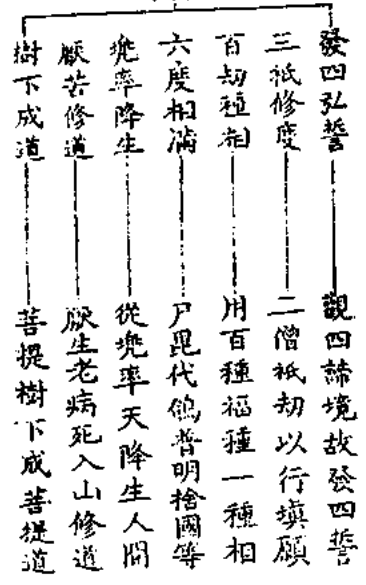 發四弘誓 觀四諦境故發四誓
三祇修度 二僧祇劫以行填願
百劫種相 用百種福種一種相
六度相滿 尸毘代鴿普明捨國等
兜率降生 從兜率天降生人間
厭苦修道 厭生老病死入山修道
樹下成道 菩提樹下成菩提道